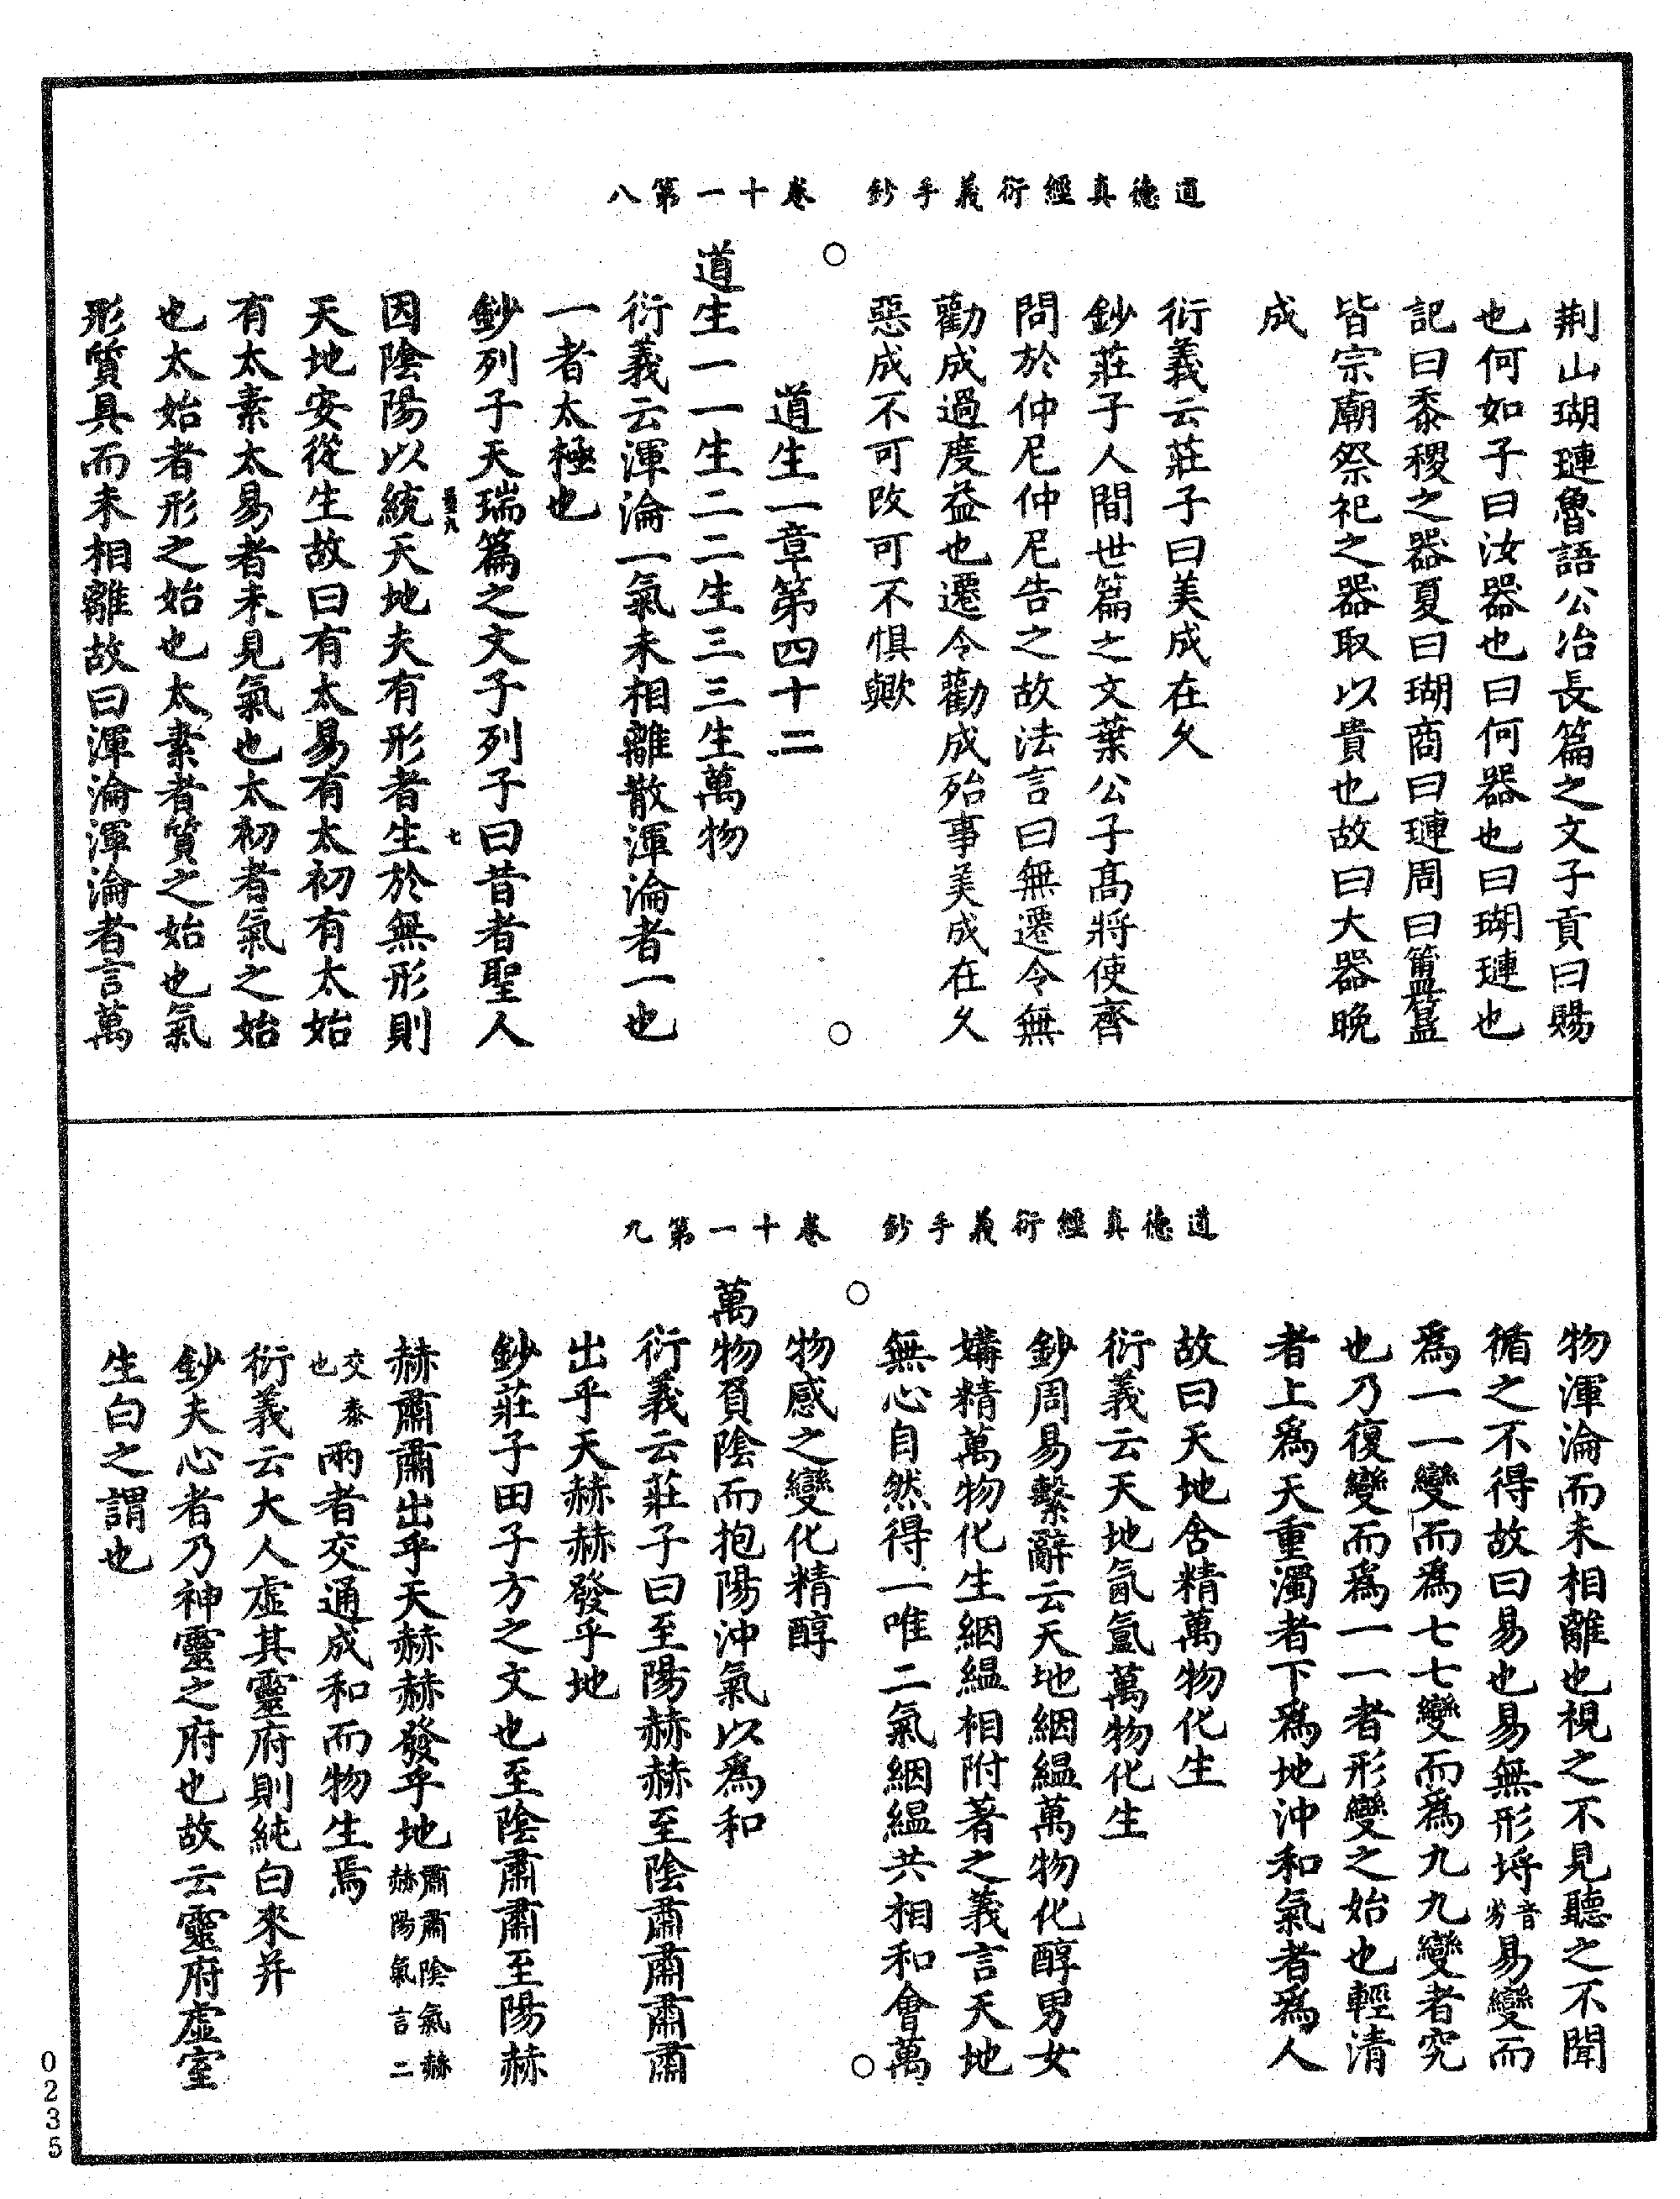 道德真經衍義手鈔　卷十一第八
荆山瑚璉魯語公冶長篇之文子貢曰賜
也何如子曰汝器也曰何器也曰瑚璉也
記曰黍稷之器夏曰瑚商曰璉周曰簠簋
皆宗廟祭祀之器取以貴也故曰大器晚
成
衍義云莊子曰美成在久
鈔莊子人間世篇之文葉公子高將使齊
問於仲尼仲尼告之故法言曰無遷令無
勸成過度益也遷令勸成殆事美成在久
惡成不可改可不懼歟
道生一章第四十二
道生一一生二二生三三生萬物
衍義云渾淪一氣未相離散渾淪者一也
一者太極也
鈔列子天瑞篇之文子列子曰昔者聖人
七
因陰陽以統天地夫有形者生於無形則
天地安從生故曰有太易有太初有太始
有太素太易者未見氣也太初者氣之始
也太始者形之始也太素者質之始也氣
形質具而未相離故曰渾淪渾淪者言萬
道德真經衍義手鈔　卷十一第九
物渾淪而未相離也視之不見聽之不聞
循之不得故曰易也易無形埒音劣易變而
爲一一變而爲七七變而爲九九變者究
也乃復變而爲一一者形變之始也輕清
者上爲天重濁者下爲地沖和氣者爲人
故曰天地含精萬物化生
衍義云天地氤氳萬物化生
鈔周易繫辭云天地絪縕萬物化醇男女
媾精萬物化生絪縕相附著之義言天地
無心自然得一唯二氣絪縕共相和會萬
物感之變化精醇
萬物負陰而抱陽沖氣以爲和
衍義云莊子曰至陽赫赫至陰肅肅肅肅
出乎天赫赫發乎地
鈔莊子田子方之文也至陰肅肅至陽赫
赫肅肅出乎天赫赫發乎地肅肅陰氣赫赫陽氣言二
交泰也兩者交通成和而物生焉
衍義云大人虛其靈府則純白來并
鈔夫心者乃神靈之府也故云靈府虛室
生白之謂也
0235